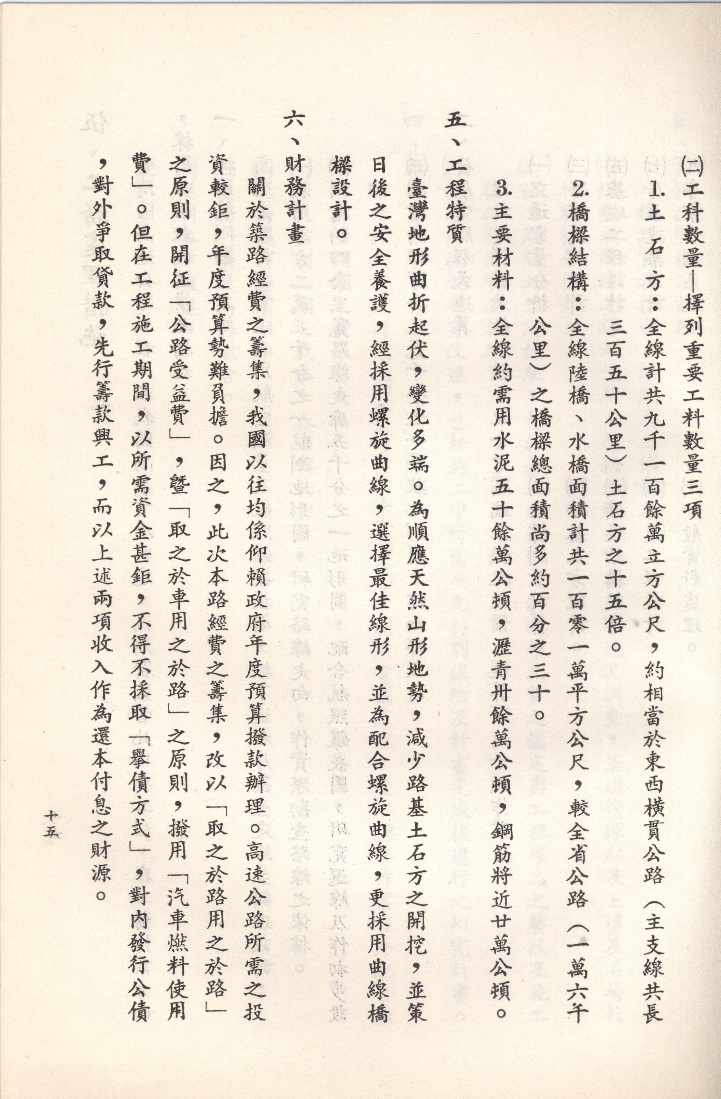 ㈡工料數量—擇列重要工料數量三項
1.土石方：全線計共九千一百餘萬立方公尺，約相當於東西橫貫公路（主支線共長
三百五十公里）土石方之十五倍。
2.橋樑結構：全線陸橋、水橋面積計共一百零一萬平方公尺，較全省公路（一萬六千
公里）之橋樑總面積尚多約百分之三十。
3.主要材料：全線約需用水泥五十餘萬公頓，瀝青卅餘萬公頓，鋼筋將近廿萬公頓。
五、工程特質
臺灣地形曲折起伏，變化多端。為順應天然山形地勢，減少路基土石方之開挖，並策
日後之安全養護，經採用螺旋曲線，選擇最佳線形，並為配合螺旋曲線，更採用曲線橋
樑設計。
六、財務計畫
關於築路經費之籌集，我國以往均係仰賴政府年度預算撥款辦理。高速公路所需之投
資較鉅，年度預算勢難負擔。因之，此次本路經費之籌集，改以「取之於路用之於路」
之原則，開征「公路受益費」，曁「取之於車用之於路」之原則，撥用「汽車燃料使用
費」。但在工程施工期間，以所需資金甚鉅，不得不採取「舉債方式」，對內發行公債
，對外爭取貸款，先行籌款興工，而以上述兩項收入作為還本付息之財源。
十五